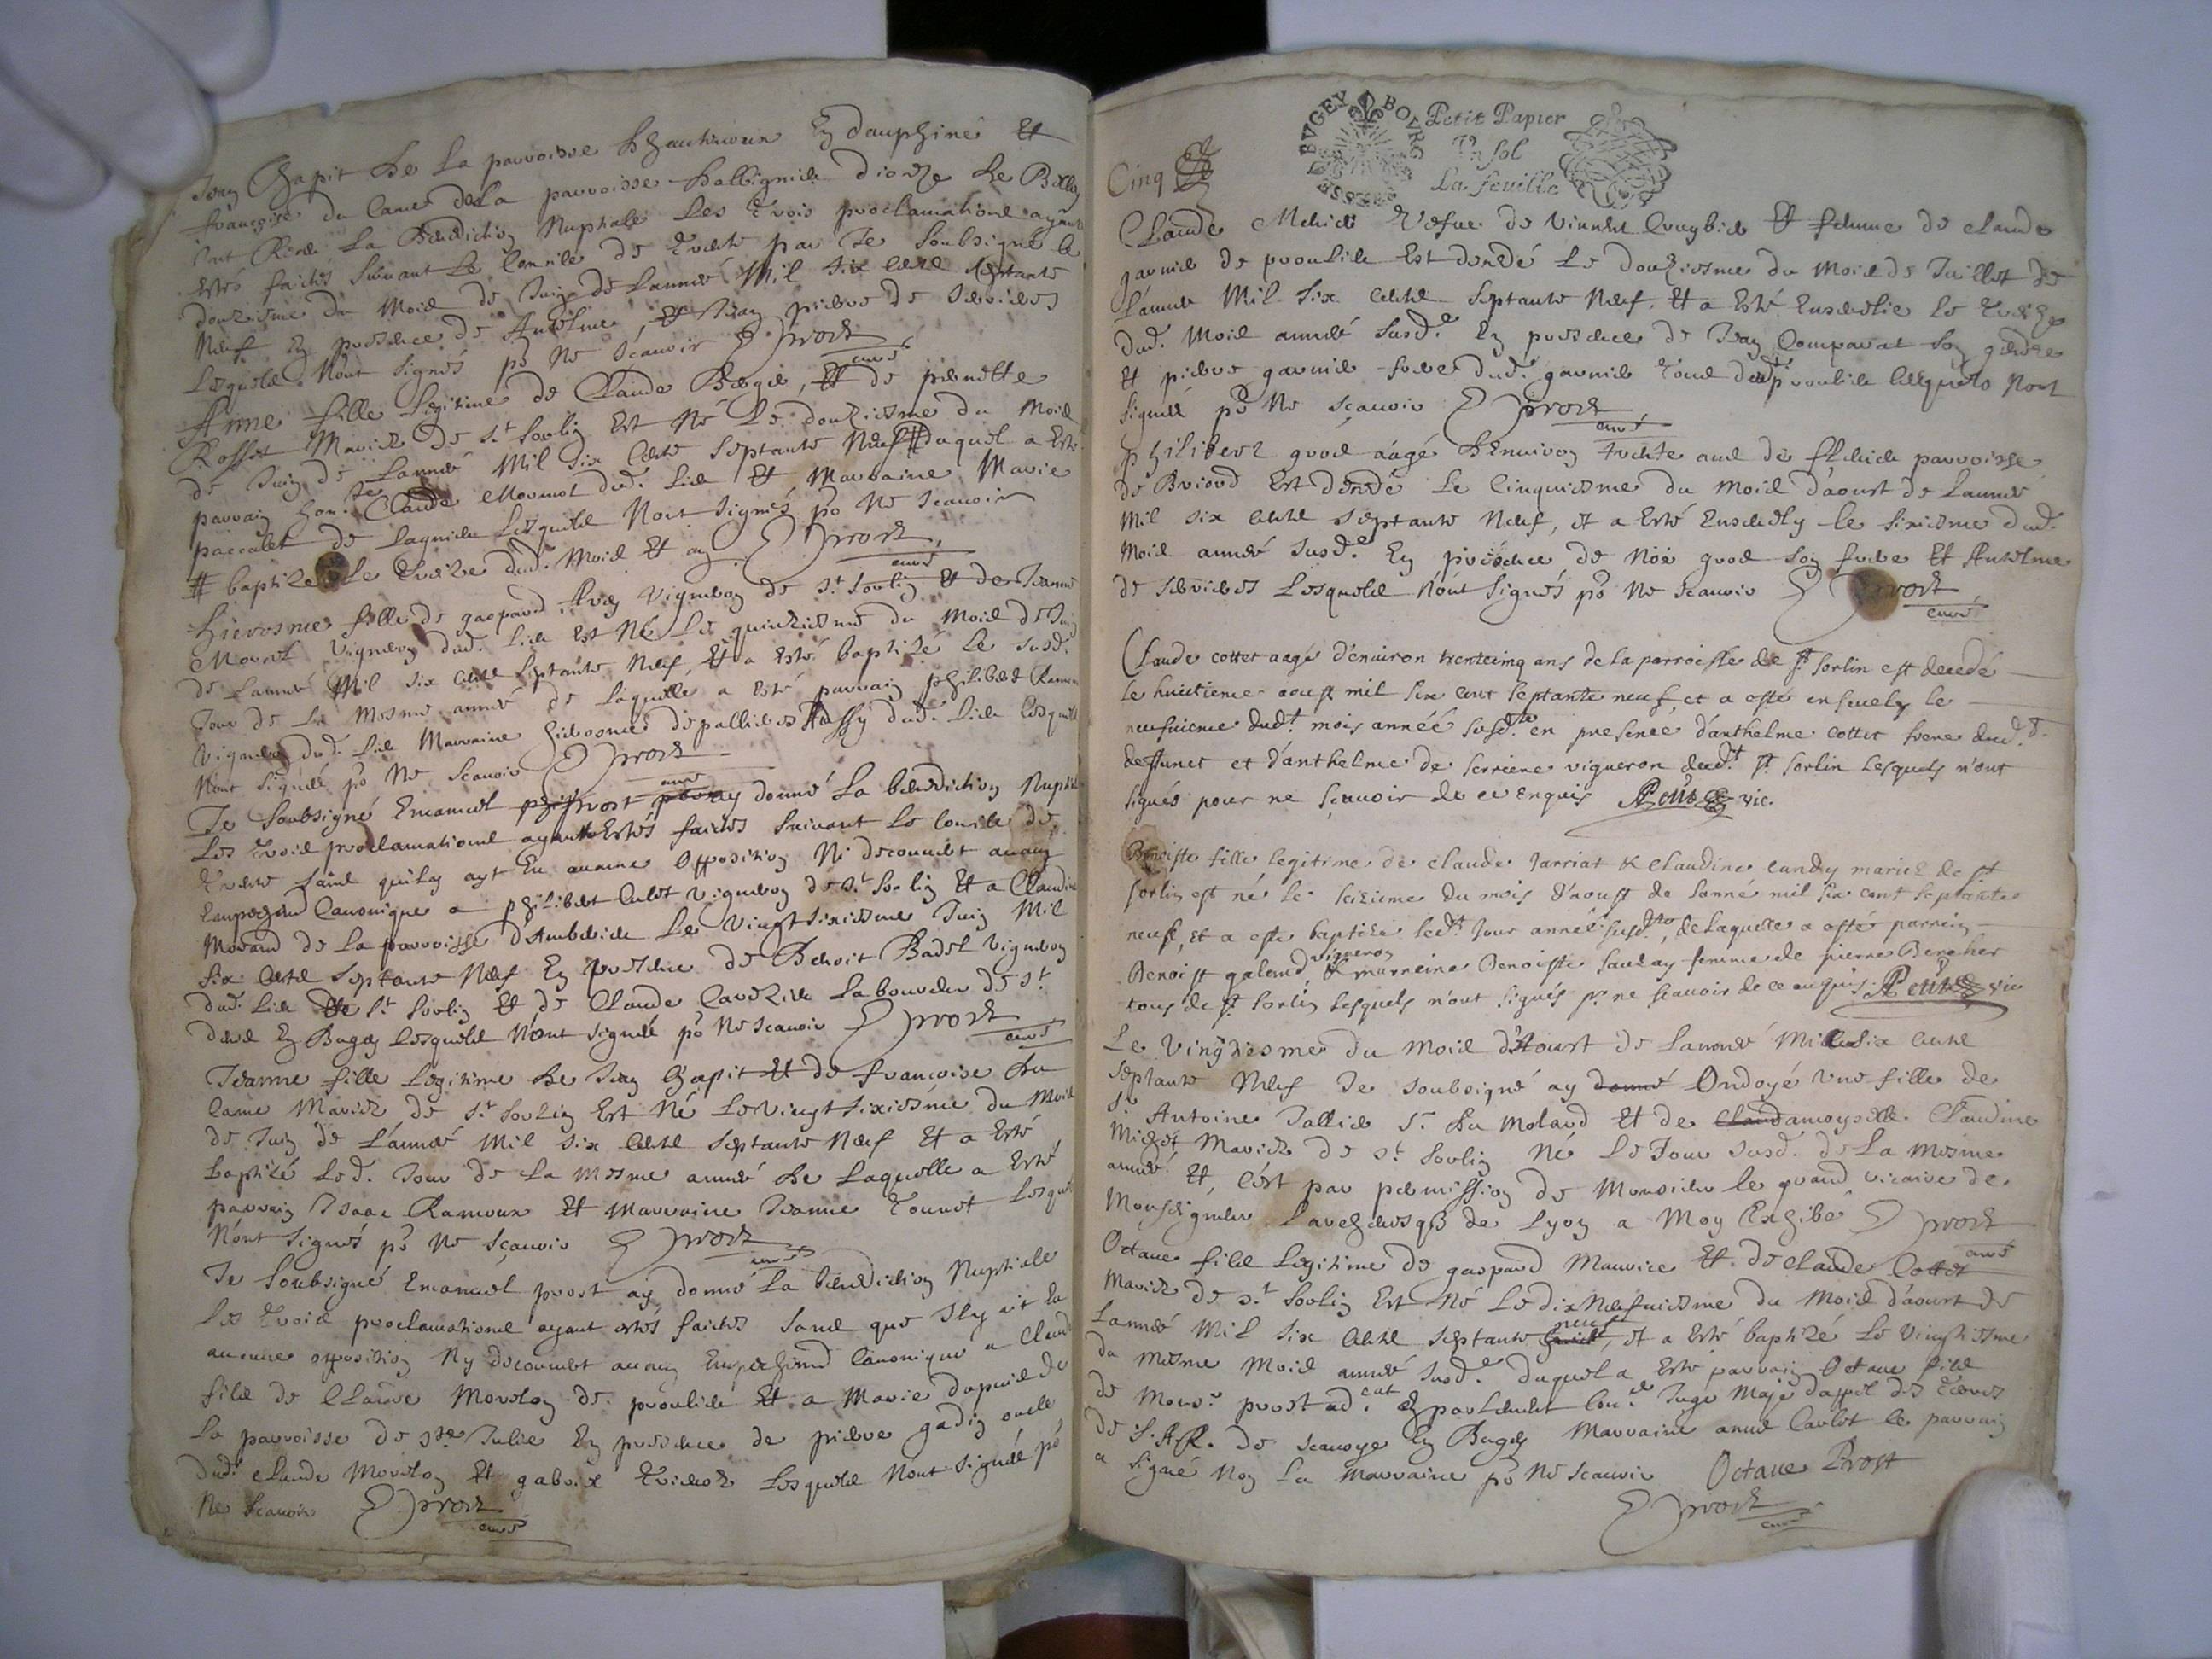 Jean Chapit de La parroisse Et
francoise du Came de La parroisse diocese de Belley
ont Receu La Benediction Nuptiale Les Trois proclamations ayant
estés faictes suivant Le Concile de Trente par Je Soubsigné le
douziesme du Mois de Juin de L'année Mil six cents septante
Neuf En presence de Anthelme, et Jean pierre de
Lesquels N'ont signés po Ne scavoir E prost
curé
Anne fille Legitime de Claude Et de pernette
Rosset Mariez de St Sorlin Est Né Le douziesme du Mois
de Juin de L'année Mil six cents septante Neuf # duquel a Esté
parrain hon.te Claude Mornot dud. Lieu Et Marraine Marie
de Lagnieu Lesquels N'ont signés po Ne scavoir
# baptizé Le Treize dud. Mois Et an E prost
curé
Hierosme fille de gaspard vigneron de St Sorlin Et de Jeanne
vigneron dud. Lieu Est Né Le quinziesme du Mois de Juin
de L'année Mil six cents septante Neuf, Et a Esté baptizé Le susd.
Jour de La Mesme année de Laquelle a Esté parrain philibert
vigneron dud. Lieu Marraine hierosme dud. Lieu Lesquels
N'ont signés po Ne scavoir E prost
curé
Je Soubsigné Emanuel prost ay donné La benediction Nuptiale
Les Trois proclamations ayant Estés faictes suivant Le Concile de
Trente sans quil y ayt Eu aucune opposition Ni decouvert aucun
Canonique a philibert Culet vigneron de St Sorlin Et a Claudine
Morand de La parroisse d'Amberieu Le vingt sixiesme Juin Mil
six cents septante Neuf En presence de Benoit Badel vigneron
dud. Lieu de St Sorlin Et de Claude Laboureur de St
En Bugey Lesquels N'ont signés po Ne scavoir E prost
curé
Jeanne fille Legitime de Jean Chapit Et de francoise du
Came Mariez de St Sorlin Est Né Le vingt sixiesme du Mois
de Juin de L'année Mil six cents septante Neuf Et a Esté
baptizé Led. Jour de La Mesme année de Laquelle a Esté
parrain Isaac Ramoux Et Marraine Jeanne Tournet Lesquels
N'ont signés po Ne scavoir E prost
curé
Je Soubsigné Emanuel prost ay donné La benediction Nuptiale
Les Trois proclamations ayant estés faictes sans que Ily ait Eu
aucune opposition Ny decouvert aucun Canonique a Claude
fils de Claude Morelon de proulieu Et a Marie de
La parroisse de Ste Julie En presence de pierre gadin oncle
dud. Claude Morelon Et Lesquels N'ont signés po
Ne scavoir E prost
curé
BVGEY BOVRG
Petit Papier
Vn sol
La feuille
Cinq
Claude Vefve de Et femme de Claude
garnier de proulieu Est decedé Le douziesme du Mois de Juillet de
L'année Mil six cents septante Neuf. Et a Esté Ensevelie Le Treize
dud. Mois année susd.e En presence de Jean Comparat son gendre
Et pierre garnier frere dud. garnier Tous dud proulieu Lesquels N'ont
signés po Ne scavoir E prost
curé
philibert aagé d'Environ trente ans de parroisse
de Briord Est decedé Le Cinquiesme du Mois d'aoust de L'année
Mil six cents septante Neuf, Et a Esté Ensevely Le sixiesme dud.
Mois année susd.e En presence de Noé son frere Et Anthelme
de Lesquels N'ont signés po Ne scavoir E prost
curé
Claude cottet aagé d'enuiron trentecinq ans de la parroisse de St sorlin est decedé
le huictieme aoust mil six cent septante neuf, et a esté enseuely le
neufuieme dud.t mois année susd.te en presence d'anthelme cottet frere dud.t
deffunct et d'anthelme de serriere vigneron dud.t St sorlin lesquels n'ont
signés pour ne sçauoir de ce enquis Petit vic.
Benoiste fille legitime de claude Jarriat & claudine candy mariez de St
sorlin est né le seizieme du mois d'aoust de lanné mil six cent septante
neuf, et a esté baptizé led.t Jour année susd.te, de laquelle a esté parrein
Benoist galand vigneron & marreine Benoiste saulay femme de pierre Bercher
tous de St sorlin lesquels n'ont signés pr ne scauoir de ce enquis. Petit vic
Le Vingtiesme du Mois d'Aoust de L'année Mil six cents
septante Neuf Je soubsigné ay donné Ondoyé Une fille de
Sr Antoine Tallier Sr du Molard Et de damoyselle Claudine
Michet Mariez de St Sorlin Né Le Jour susd. de La Mesme
année Et, C'est par permission de Monsieur le grand vicaire de
Monseigneur L'archevesque de Lyon a Moy Exhibé E prost
curé
Octave fils Legitime de gaspard Maurice Et de Claude Cottet
Mariez de St Sorlin Est Né Le dix Neufuiesme du Mois d'aoust de
L'année Mil six cents septante neuf, et a Esté baptizé Le Vingtiesme
du Mesme Mois année susd.e duquel a Esté parrain Octave fils
de Monsr prost ad.cat En parlement Con.er Juge Maje d'appel des Terres
de S.A.R. de Scavoye En Bugey Marraine anne Carlot le parrain
a signé Non La Marraine po Ne scavoir Octave Prost
E prost
curé